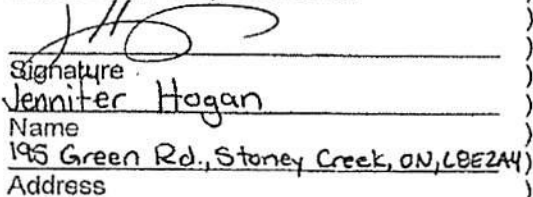 )
)
Signature )
Jennifer Hogan )
Name )
195 Green Rd., Stoney Creek, ON, L8E2A4)
Address )